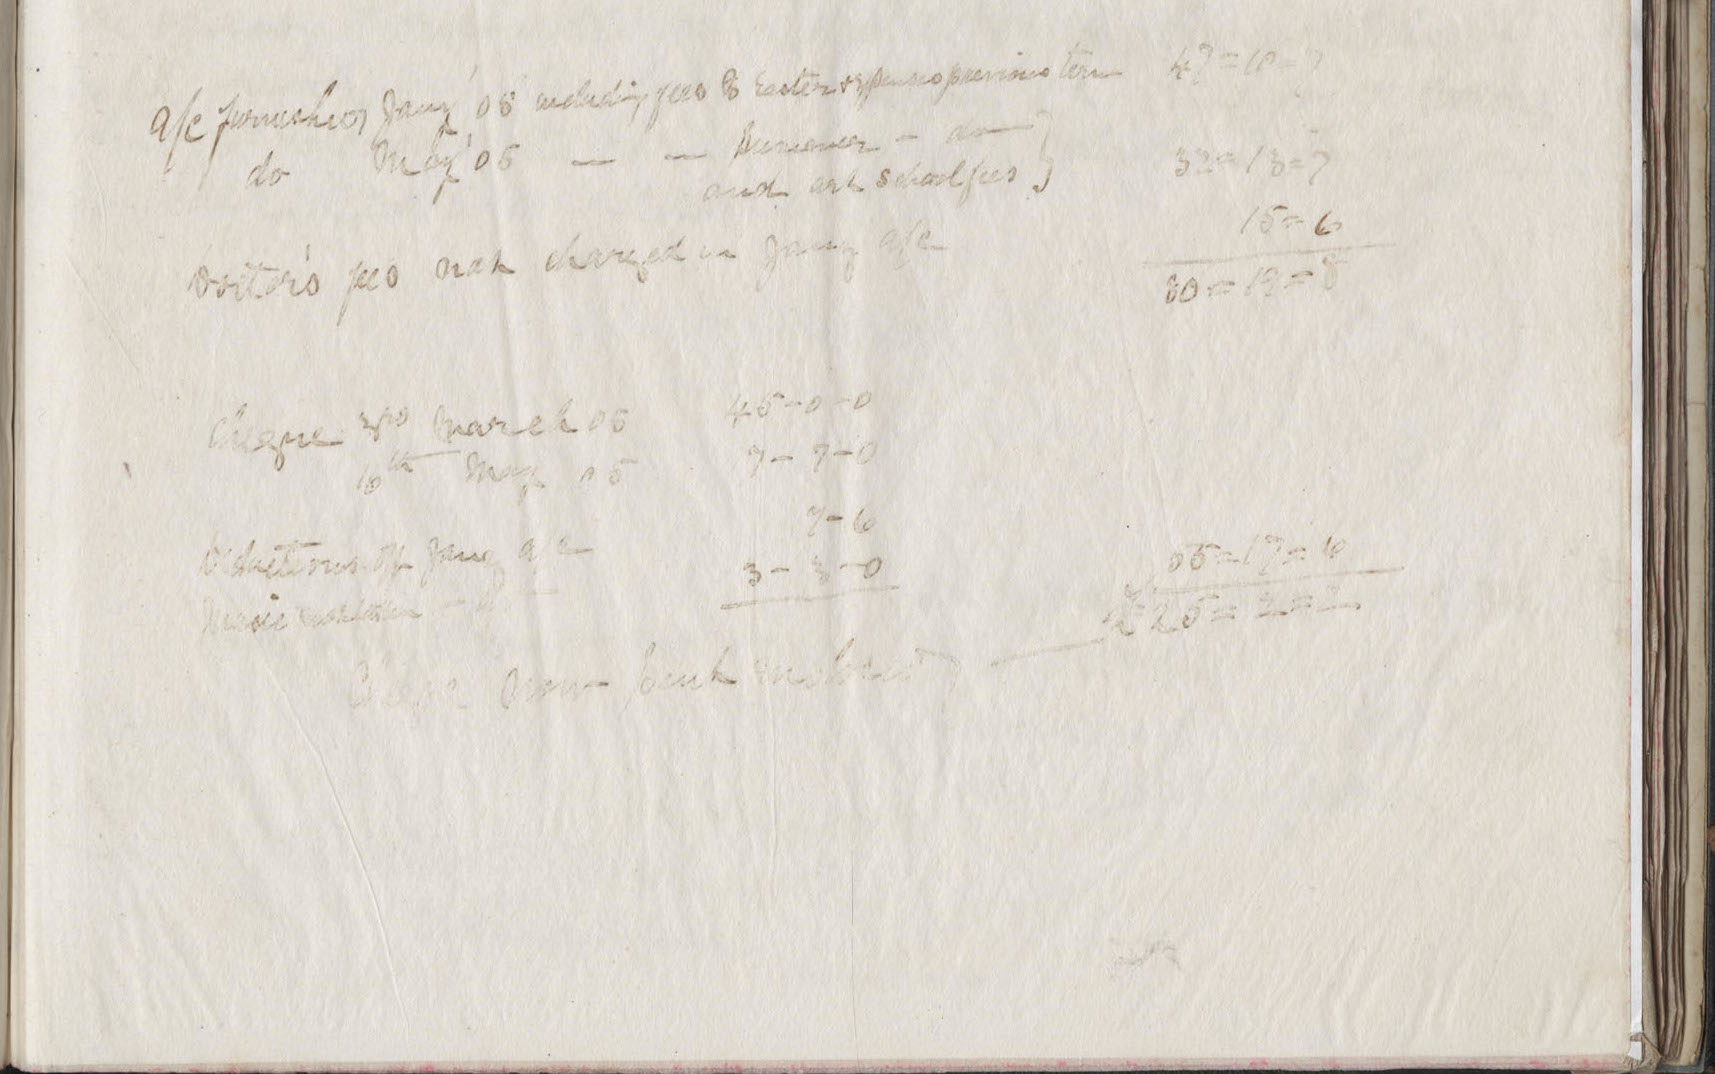 a/c furnished Jany '05 including fees to Easter & expenses previous term 47=10=7
do May '05 — — Summer - do }
and art school fees } 32=13=7
Doctor's fees not charged in Jany a/c 15=6
80=19=8
Cheque 3rd March 05 45-0-0
16th May 05 7-7-0
Deductions off Jany a/c 7-6
Music 3-3-0 55=17=6
Cheque now sent — £25=2=2